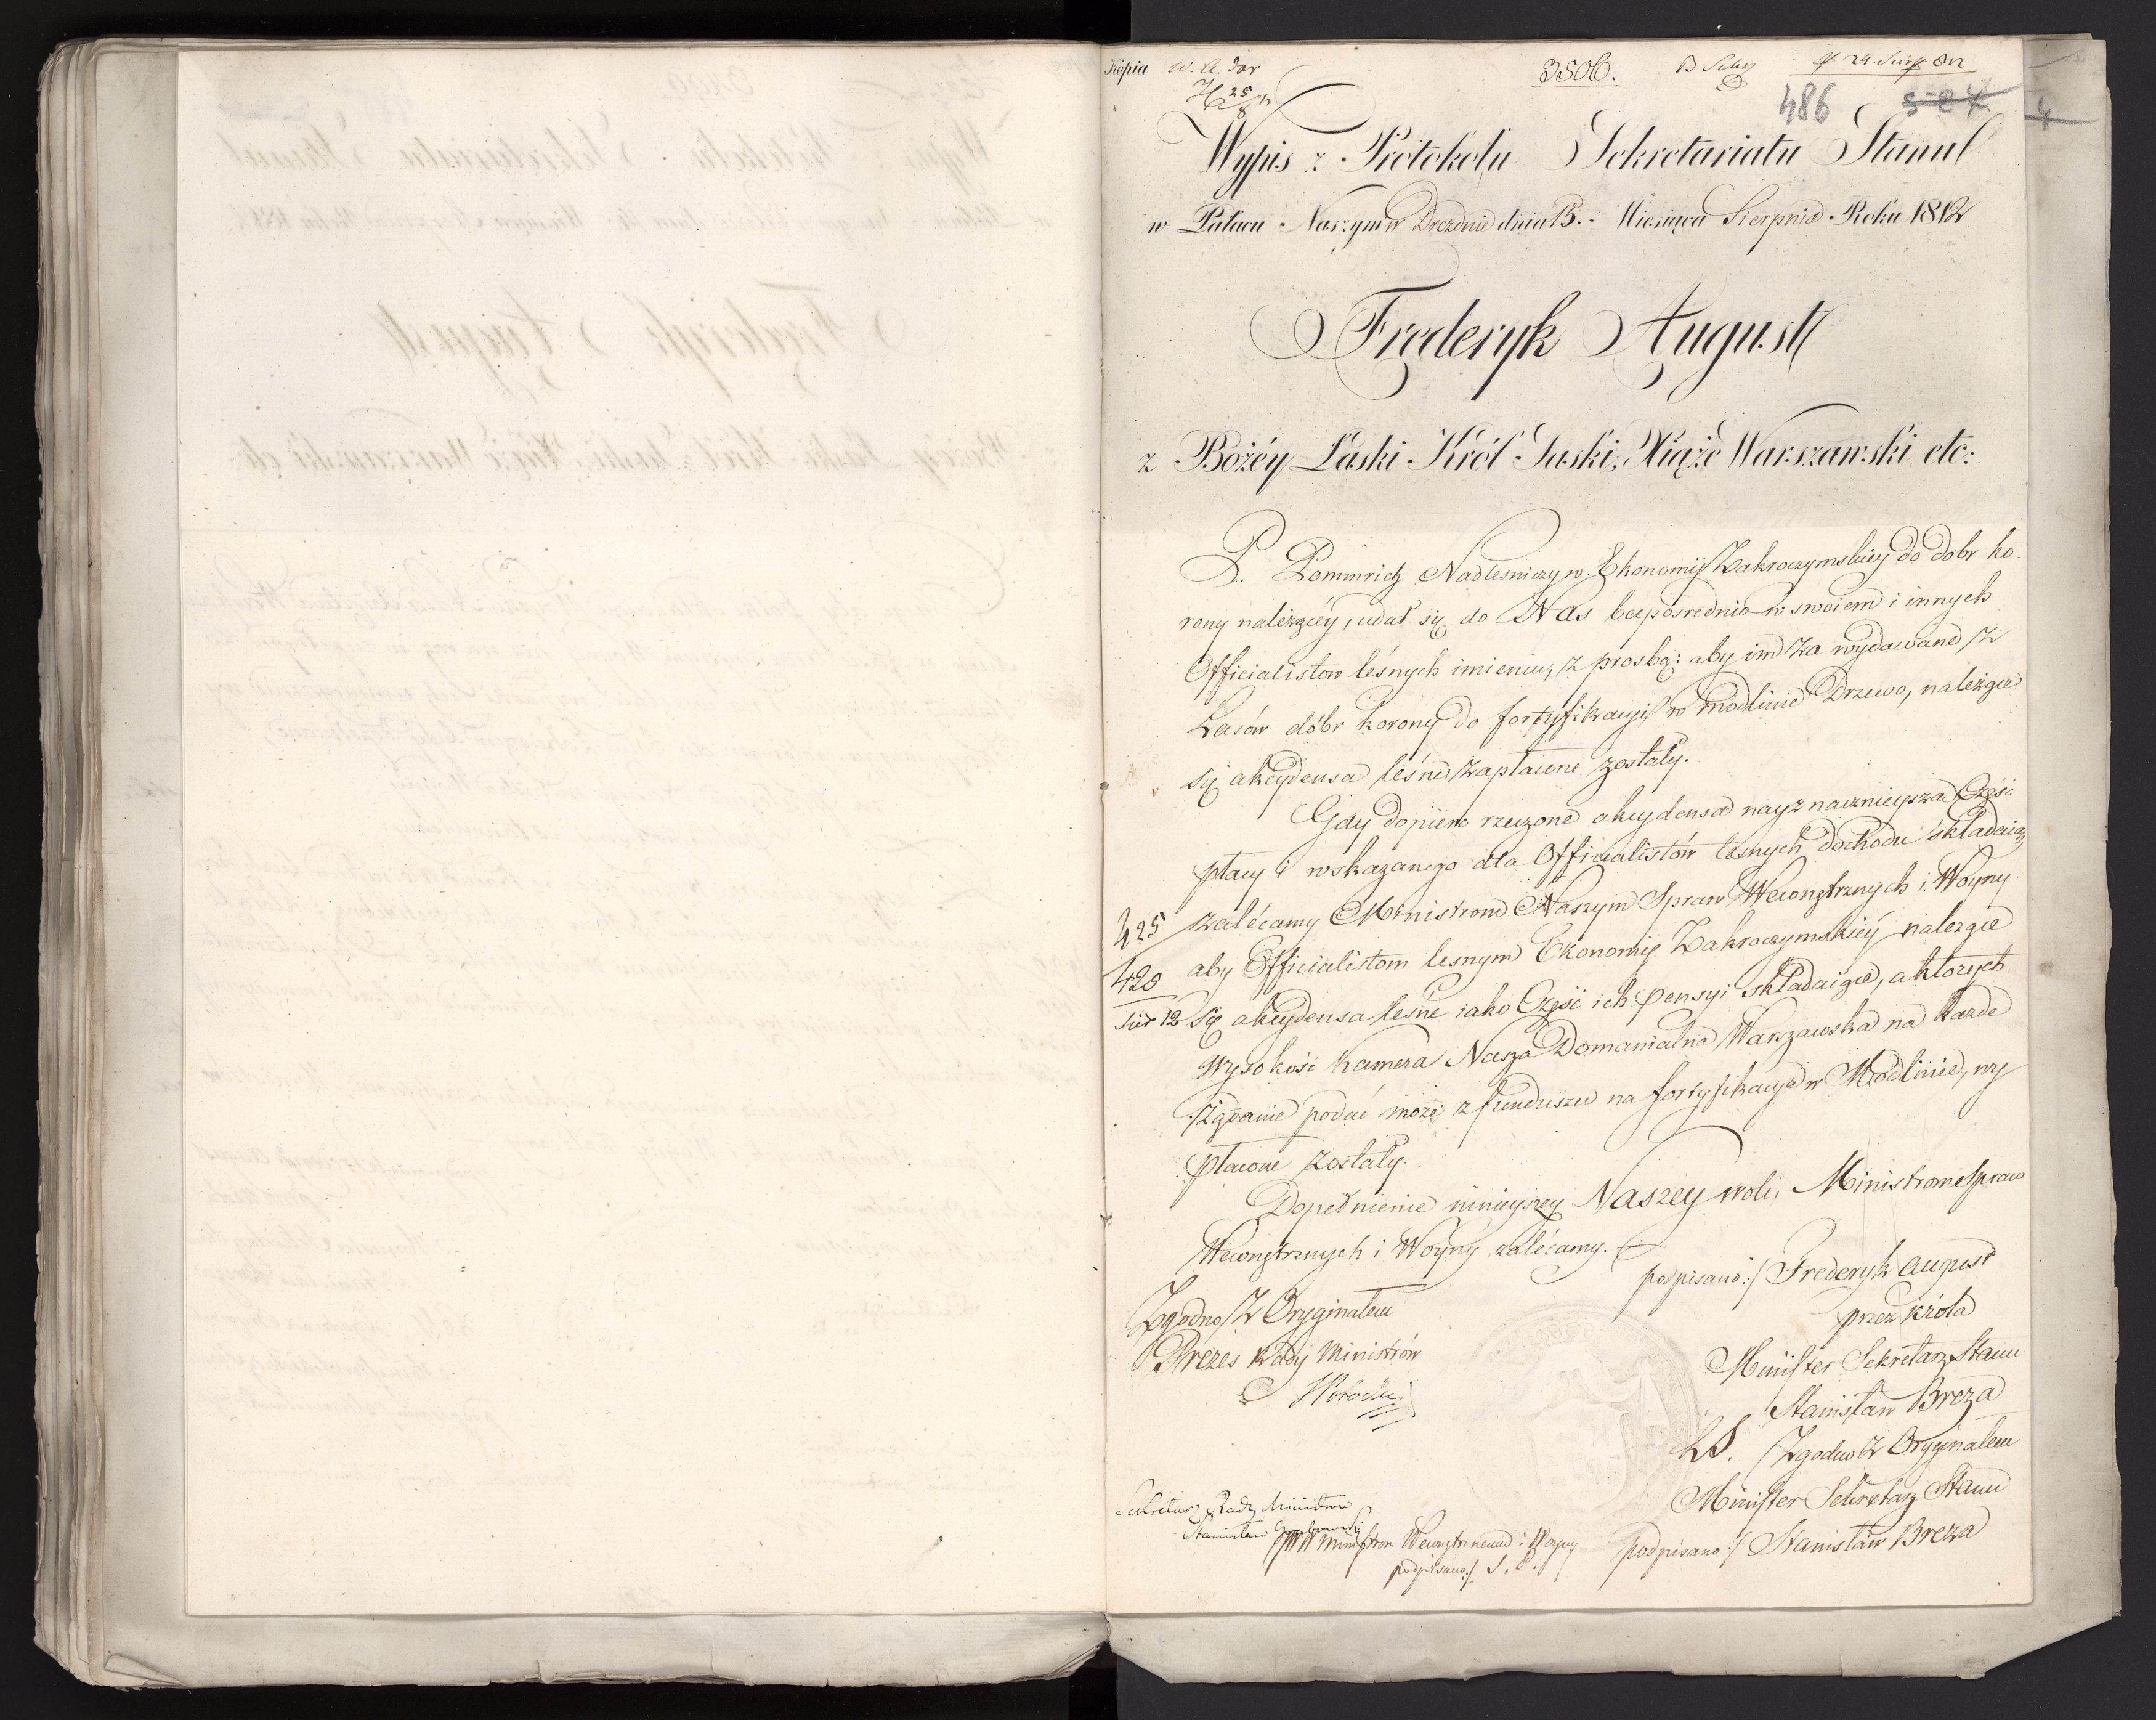 Kopia
3506.
486
Wypis z Protokółu Sekretariatu Stanu
w Pałacu Naszym w Dreznie dnia 13. Miesiąca Sierpnia Roku 1812
Fryderyk August
z Bożéy Łaski Król Saski, Xiążę Warszawski etc:
P. Pommrich Nadlesniczy w Ekonomij Zakroczymskiey do dobr ko-
rony należącéy, udał się do Nas bezpośrednio w swoiem i innych
Officialistow leśnych imieniu, z prosbą: aby im za wydawane z
Lasów dóbr korony do fortyfikacyi w Modlinie Drzewo, należące
się akcydensa leśne zapłacone zostały.
Gdy dopiero rzeczone akcydensa nayznacznieyszą Część
płacy i wskazanego dla Officialistów leśnych dochodu składaią
zalécamy Ministrom Naszym Spraw Wewnętrznych i Woyny
aby Officialistom lesnym Ekonomij Zakroczymskiéy należące
się akcydensa leśne iako Część ich pensyi składaiące, a których
wysokość Kamera Nasza Domanialna Warszawska na każde
żądanie podać może z funduszu na fortyfikacye w Modlinie, wy
płacone zostały.
Dopełnienie ninieyszey Naszey woli, Ministrom Spraw
Wewnętrznych i Woyny zalécamy.
425
420
podpisano:/ Fryderyk August
przez Króla
Minister Sekretarz Stanu
Stanisław Breza
LS. Zgodno z Oryginałem
Minister Sekretarz Stanu
podpisano:/ Stanisław Breza
Zgodno z Oryginałem
Prezes Rady Ministrów
Sekretarz Rady Ministrów
Stanisław Grabowski
JWW Ministron Wewnętrznemu i Woyny
podpisano:/ S. P.